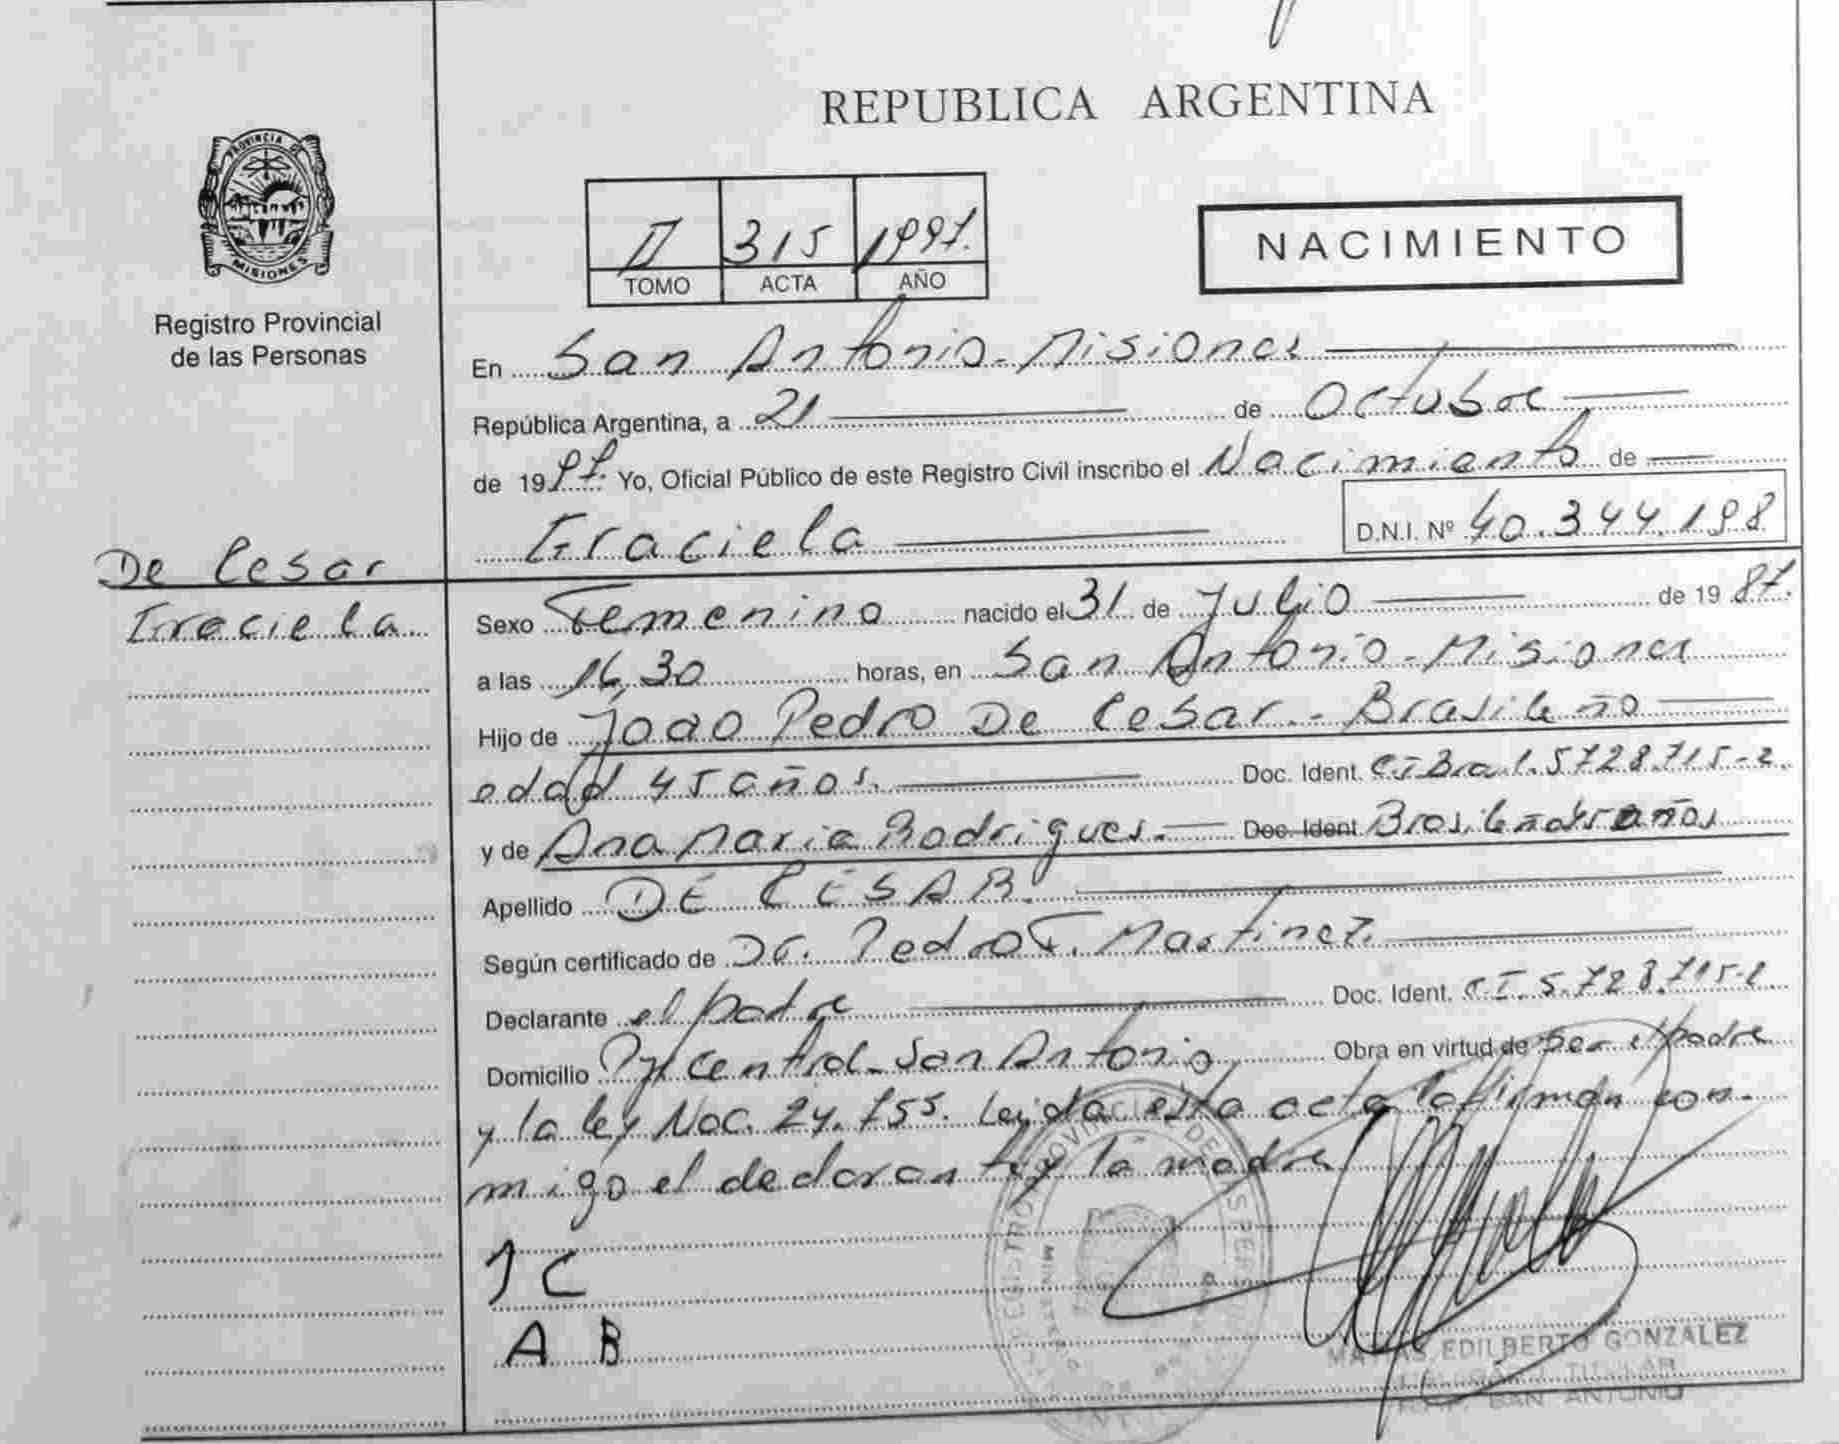 REPUBLICA ARGENTINA
PROVINCIA DE
MISIONES
Registro Provincial
de las Personas
II 315 1997.
TOMO ACTA AÑO
NACIMIENTO
En San Antonio - Misiones
República Argentina, a 21 de Octubre
de 1997. Yo, Oficial Público de este Registro Civil inscribo el Nacimiento de
Graciela D.N.I. Nº 40.344.198
De Cesar
Graciela
Sexo Femenino nacido el 31 de Julio de 19 87.
a las 16,30 horas, en San Antonio - Misiones
Hijo de Joao Pedro De Cesar.- Brasileño
edad 45 años. Doc. Ident. C.I Bra. 1.5728.715-2
y de Ana Maria Rodrigues.- Doc. Ident. años
Apellido DE CESAR.
Según certificado de Dr. Pedro F. Martinez.
Declarante el padre Doc. Ident. C.I. 5.728.715-2
Domicilio Central - San Antonio Obra en virtud de ser el padre
y la ley Nac. 24.755. Leída esta acta la firman con-
migo el declarante y la madre
J C
A B
REGISTRO PROVINCIAL DE LAS PERSONAS
MATIAS EDILBERTO GONZALEZ
TITULAR
SAN ANTONIO